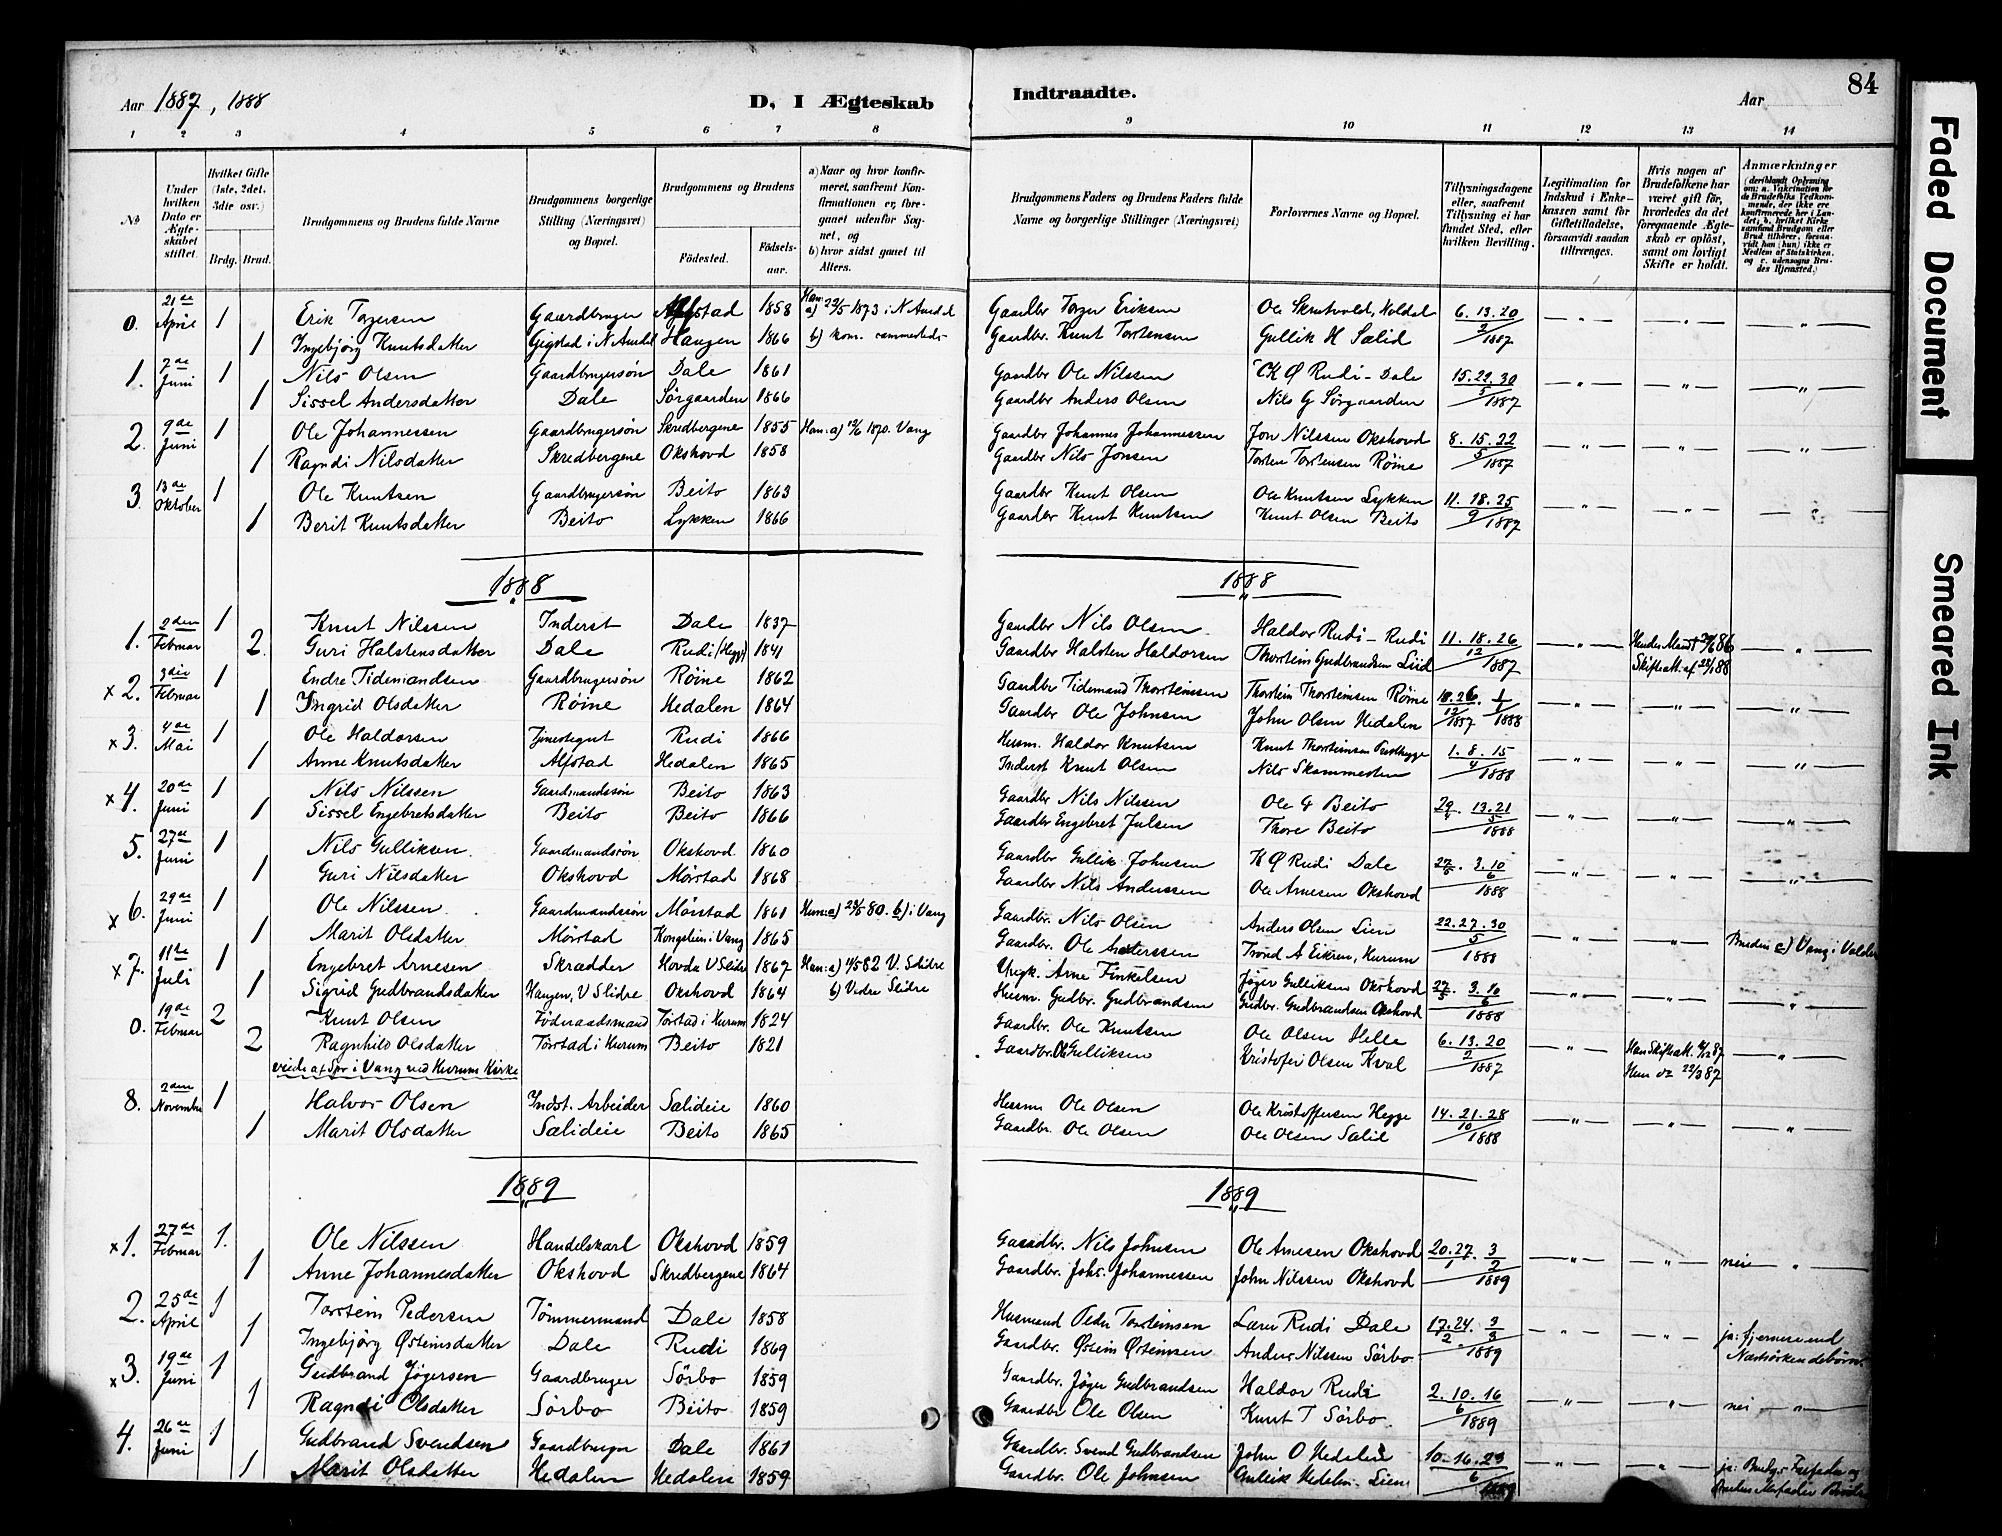 Aar 1887, 1888
D, I Ægteskab
Indtraadte.
Aar
84
1 2 3 4 5 6 7 8 9 10 11 12 13 14
No
Under hvilken Dato er Ægteskabet stiftet.
Hvilket Gifte (1ste, 2det, 3die osv.)
Brdg. Brud.
Brudgommens og Brudens fulde Navne
Brudgommens borgerlige Stilling (Næringsvei) og Bopæl.
Brudgommens og Brudens
Fødested.
Fødselsaar.
a) Naar og hvor konfirmeret, saafremt Konfirmationen er foregaaet udenfor Sognet, og b) hvor sidst gaaet til Alters.
Brudgommens Faders og Brudens Faders fulde Navne og borgerlige Stillinger (Næringsvei)
Forlovernes Navne og Bopæl.
Tillysningsdagene eller, saafremt Tillysning ei har fundet Sted, efter hvilken Bevilling.
Legitimation for Indskud i Enkekassen samt for Giftetilladelse, forsaavidt saadan tiltrænges.
Hvis nogen af Brudefolkene har været gift før, hvorledes da det foregaaende Ægteskab er opløst, samt om lovligt Skifte er holdt.
Anmærkninger (deriblandt Oplysning om: a. Vakcination for de Brudefolks Vedkommende, der ikke ere konfirmerede her i Landet; b. hvilket Kirkesamfund Brudgom eller Brud tilhører, forsaavidt han (hun) ikke er Medlem af Statskirken, og c. udensogns Brudes Hjemsted.)
0. 21de April 1 Erik Torgersen Gaardbruger Alfstad 1858 Han: a) 22/5 1873 i N Aurdal Gaardbr Torger Eriksen Ole Skrutvold, Voldal 6. 13. 20
1 Ingebjørg Knutsdatter Gigstad i N Aurdal Haugen 1866 b) kom. sammesteds Gaardbr. Knut Torstensen Gullik H Sælid 3/1887
1. 7de Juni 1 Nils Olsen Gaardbrugersøn Dale 1861 Gaardbr Ole Nilssen K Ø Rudi - Dale 15. 22. 30
1 Sissel Andersdatter Dale Sørgaarden 1866 Gaardbr Anders Olsen Nils G Sørgaarden 5/1887
2. 9de Juni 1 Ole Johannessen Gaardbrugersøn Skredbergene 1855 Han: a) 12/6 1870. Vang Gaardbr Johannes Johannessen Jon Nilssen Okshovd 8. 15. 22
1 Ragndi Nilsdatter Skredbergene Okshovd 1858 Gaardbr Nils Jonsen Torsten Torstensen Røine 5/1887
3. 13de Oktober 1 Ole Knutsen Gaardbrugersøn Beito 1863 Gaardbr Knut Olsen Ole Knutsen Lykken 11. 18. 25
1 Berit Knutsdatter Beito Lykken 1866 Gaardbr Knut Knutsen Knut Olsen Beito 9/1887
1888 1888
1. 2den Februar 1 Knut Nilssen Inderst Dale 1837 Gaardbr Nils Olsen Haldor Rudi - Rudi 11. 18. 26
2. Guri Halstensdatter Dale Rudi (Hegge) 1841 Gaardbr Halsten Haldorsen Thorstein Gudbrandsen Liid 12/1887 Skifteatt. af 23/1 88
x 2. 3die Februar 1 Endre Tidemandsen Gaardbrugersøn Røine 1862 Gaardbr Tidemand Thorsteinssen Thorstein Thorsteinsen Røine 18. 26. 1
1 Ingrid Olsdatter Røine Hedalen 1864 Gaardbr Ole Johnsen John Olsen Hedalen 12/1887 1/1888
x 3. 4de Mai 1 Ole Haldorsen Tjenestegut Rudi 1866 Husm. Haldor Knutsen Knut Thorsteinsen 1. 8. 15
1 Anne Knutsdatter Alfstad Hedalen 1865 Inderst Knut Olsen Nils Skammesten 4/1888
x 4. 20de Juni 1 Nils Nilssen Gaardmandssøn Beito 1863 Gaardbr Nils Nilssen Ole G Beito 29. 13. 21
1 Sissel Engebretsdatter Beito Beito 1866 Gaardbr Engebret Julsen Thore Beito 5/1888
5. 27de Juni 1 Nils Gulliksen Gaardmandssøn Okshovd 1860 Gaardbr Gullik Johnsen K Ø Rudi Dale 27/5. 3. 10
1 Guri Nilsdatter Okshovd Mørstad 1868 Gaardbr Nils Anderssen Ole Arnesen Okshovd 6/1888
x 6. 29de Juni 1 Ole Nilssen Gaardmandssøn Mørstad 1861 Hun: a) 23/5 80. b) i Vang Gaardbr. Nils Olsen Anders Olsen Lien 22. 27. 30
1 Marit Olsdatter Mørstad Kongslien i Vang 1865 Gaardbr. Ole Anderssen Trond A Eikren, Hurum 5/1888 Bruden c) Vang i Valders
x 7. 11te Juli 1 Engebret Arnesen Skrædder Hovda V Slidre 1867 Han: a) 14/5 82 V. Slidre Ungk. Arne Finkelsen Jøger Gulliksen Okshovd 27/5. 3. 10
1 Sigrid Gudbrandsdatter Haugen, V Slidre Okshovd 1864 b) Vedre Slidre Husm. Gudbr. Gudbrandsen Gudbr. Gudbrandsen Okshovd 6/1888
0. 19de Februar 2 Knut Olsen Føderaadsmand Tørstad i Hurum 1824 Gaardbr. Ole Knutsen Ole Olsen Helle 6. 13. 20
2 Ragnhild Olsdatter Tørstad i Hurum Beito 1821 Gaardbr. Ole Gulliksen Kristofer Olsen Kval 2/1887 Hun do 22/3 87
viede af Spr i Vang ved Hurum Kirke
8. 2den November 1 Halvor Olsen Indst. Arbeider Sælideie 1860 Husm Ole Olsen Ole Kristoffersen Hegge 14. 21. 28
1 Marit Olsdatter Sælideie Beito 1865 Gaardbr. Ole Olsen Ole Olsen Sælid 10/1888
1889 1889
x 1. 27de Februar 1. Ole Nilssen Handelskarl Okshovd 1859 Gaardbr. Nils Johnsen Ole Arnesen Okshovd 20. 27. 3
1 Anne Johannesdatter Okshovd Skredbergene 1864 Gaardbr. Johs. Johannessen John Nilssen Okshovd 1 2/1889 nei
2. 25de April 1 Torstein Pedersen Tømmermand Dale 1858 Husmand Peder Torsteinsen Lars Rudi Dale 17. 24. 3
1 Ingebjørg Østeinsdatter Dale Rudi 1869 Gaardbr. Østein Østeinsen Anders Nilssen Sørbo 2 3/1889 ja: fjernere end Næstsøskendebørn
x 3. 19de Juni 1 Gudbrand Jøgersen Gaardbruger Sørbo 1859 Gaardbr. Jøger Gudbrandsen Haldor Rudi 2. 10. 16
1 Ragndi Olsdatter Sørbo Beito 1859 Gaardbr Ole Olsen Knut T Sørbo 6/1889 nei
4. 26de Juni 1 Gudbrand Svendsen Gaardbruger Dale 1861 Gaardbr. Svend Gudbrandsen John O Hedalen 10. 16. 23
1 Marit Olsdatter Hedalen Hedalen 1859 Gaardbr. Ole Johnsen Gullik Hedalen - Lien 6/1889 ja: Brudgs Farfader og Brudens Morfader
Faded Document
Smeared Ink